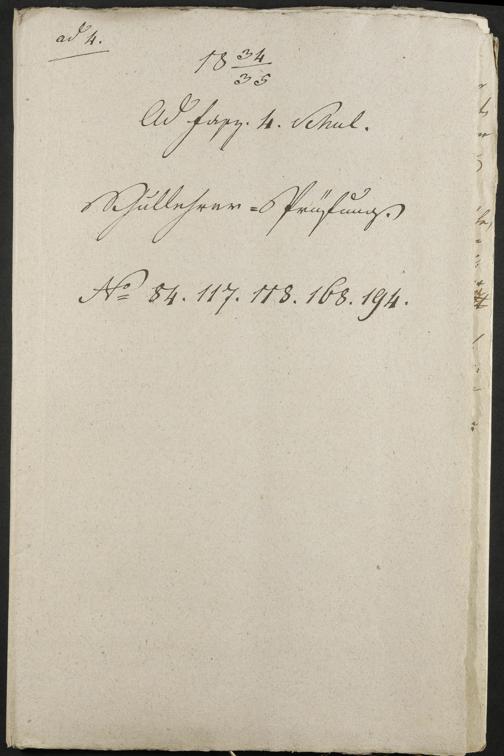 ad 4.
18 34/35
Ad fasz. 4. Schul.
Schullehrer=Prüfung.
No 84. 117. 118. 168. 194.